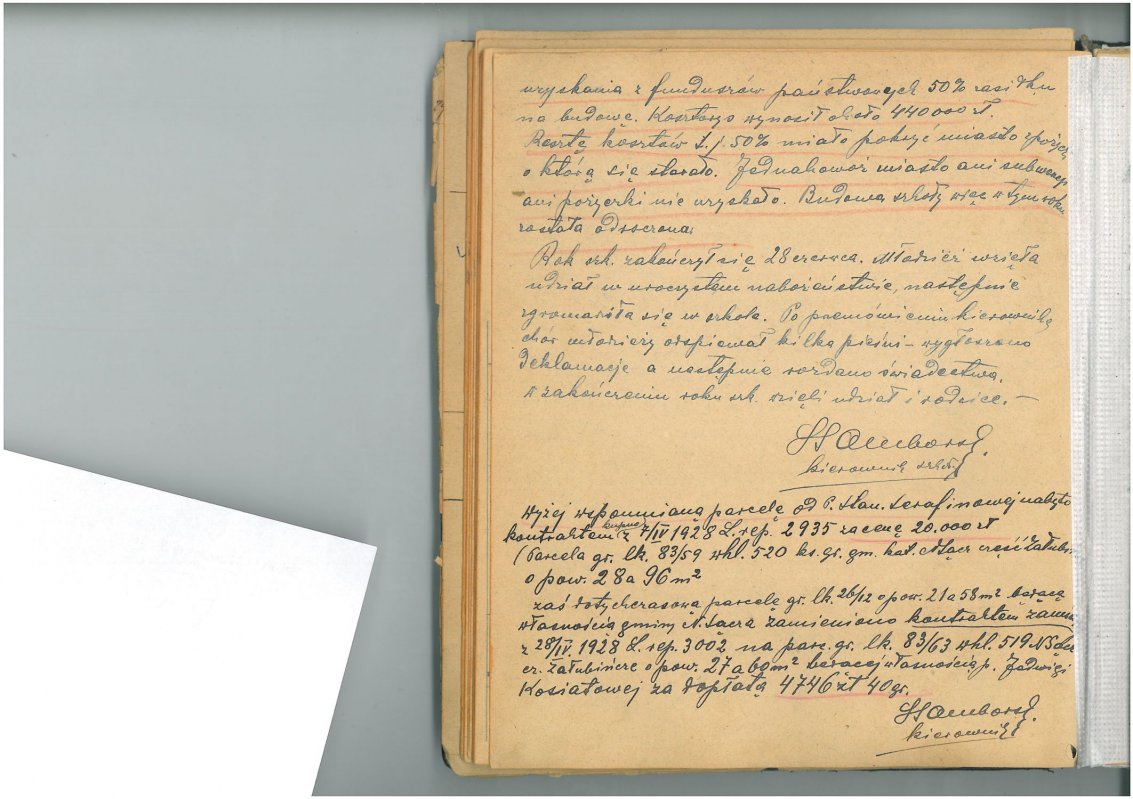 uzyskania z funduszów państwowych 50% zasiłku
na budowę. Kosztorys wynosił około 440000 zł.
Resztę kosztów t.j. 50% miało pokryć miasto z pożyczki
o którą się starało. Jednakowoż miasto ani subwencji
ani pożyczki nie uzyskało. Budowa szkoły więc w tym roku
została odroczona.
Rok szk. zakończył się 28 czerwca. Młodzież wzięła
udział w uroczystem nabożeństwie, następnie
zgromadziła się w szkole. Po przemówieniu kierownika
chór młodzieży odśpiewał kilka pieśni – wygłoszono
deklamacje a następnie rozdano świadectwa.
W zakończeniu roku szk. wzięli udział i rodzice. –
kierownik szkoły
Wyżej wspomnianą parcelę od P. Stan. Serafinowej nabyto
kontraktem kupna z 7/IV 1928 L. rep. 2935 za cenę 20.000 zł
(Parcela gr. lk. 83/59 whl. 520 ks. gr. gm. kat. część Załubińcze
o pow. 28 a 96 m²
zaś dotychczasową parcelę gr. lk. 26/12 o pow. 21 a 58 m² będącą
własnością gminy N. Sącza zamieniono kontraktem zamiany
z 28/IV. 1928 L. rep. 3002 na parc. gr. lk. 83/63 whl. 519 N. Sącz
cz. Załubińcze o pow. 27 a 69 m² będącej własnością p. Jadwigi
Kosiatowej za dopłatą 4746 zł 40 gr.
kierownik